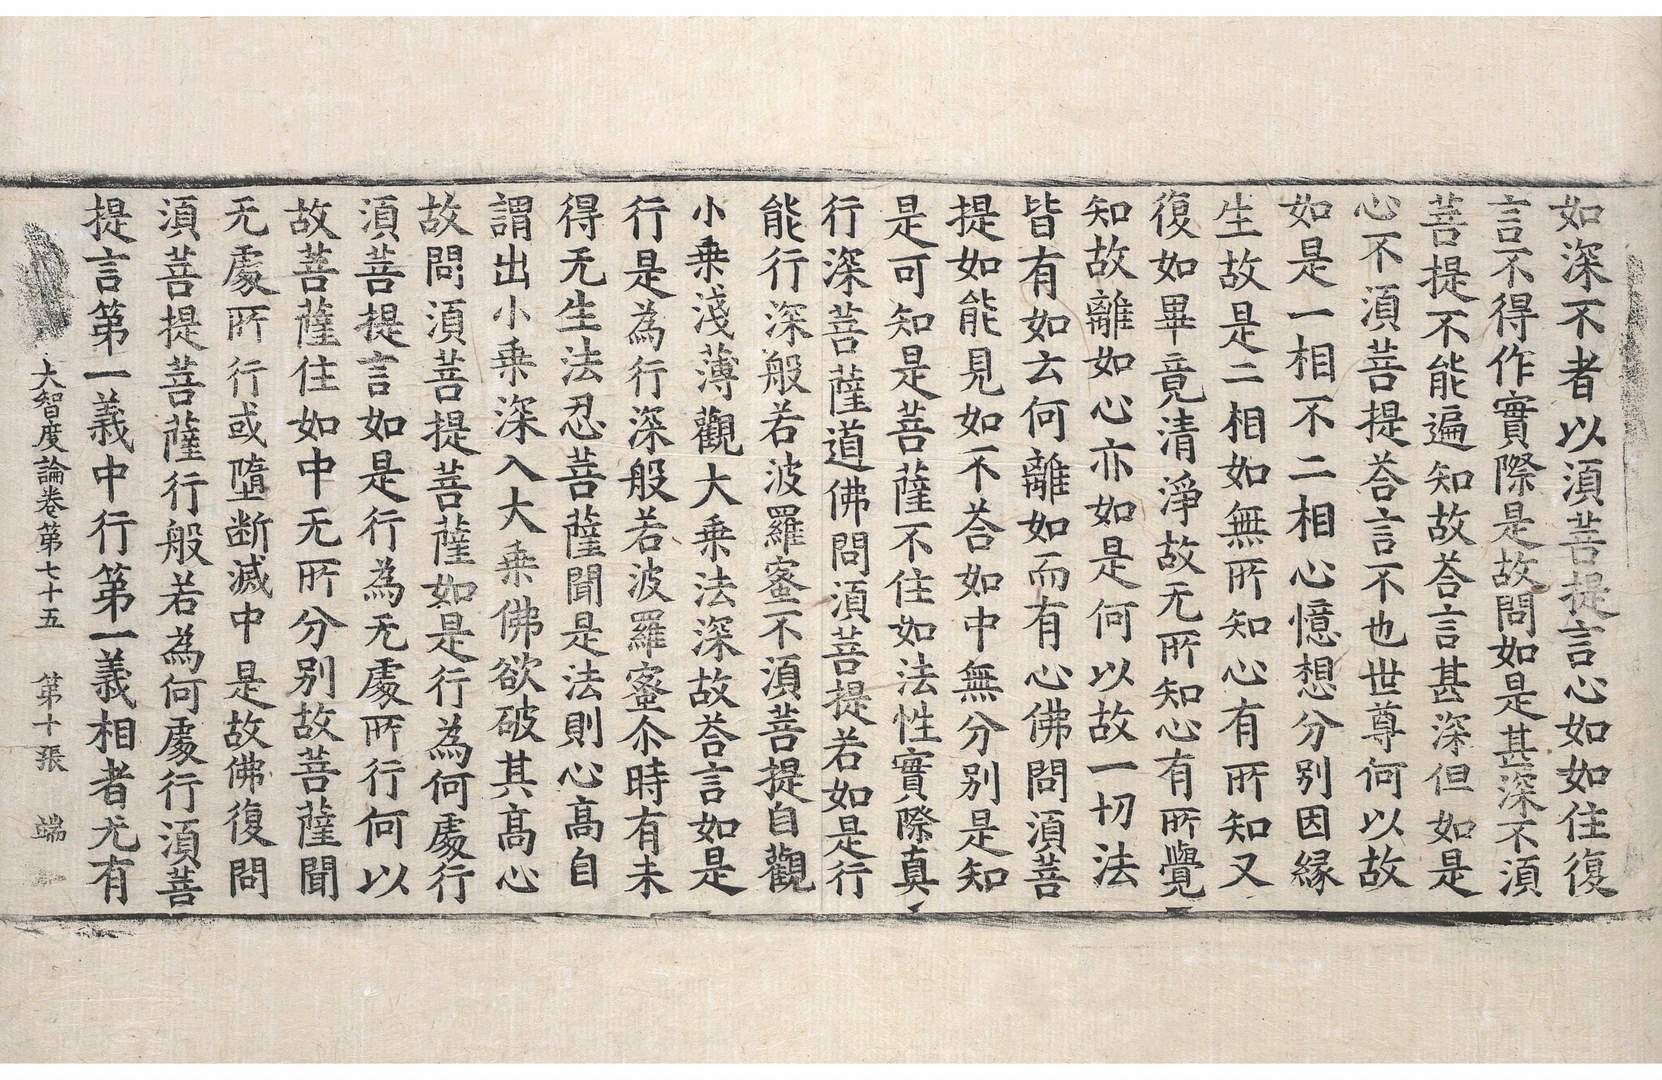 如深不者以須菩提言心如如住復
言不得作實際是故問如是甚深不須
菩提不能遍知故荅言甚深但如是
心不須菩提荅言不也世尊何以故
如是一相不二相心憶想分別因縁
生故是二相如無所知心有所知又
復如畢竟清淨故无所知心有所覺
知故離如心亦如是何以故一切法
皆有如云何離如而有心佛問須菩
提如能見如不荅如中無分別是知
是可知是菩薩不住如法性實際真
行深菩薩道佛問須菩提若如是行
能行深般若波羅蜜不須菩提自觀
小乗淺薄觀大乗法深故荅言如是
行是為行深般若波羅蜜尒時有未
得无生法忍菩薩聞是法則心高自
謂出小乗深入大乗佛欲破其高心
故問須菩提菩薩如是行為何處行
須菩提言如是行為无處所行何以
故菩薩住如中无所分別故菩薩聞
无處所行或墮断滅中是故佛復問
須菩提菩薩行般若為何處行須菩
提言第一義中行第一義相者无有
大智度論卷第七十五　第十張　端